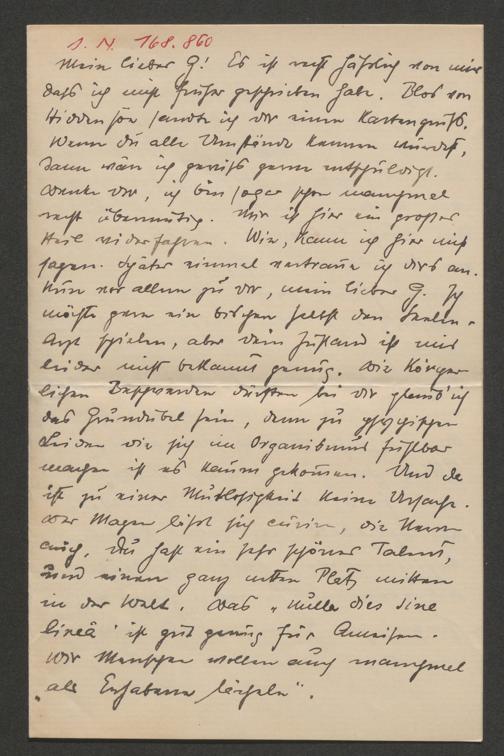 J. N. 168.860
Mein lieber G! Es ist recht häßlich von mir
daß ich nicht früher geschrieben habe. Blos von
Hiddensöe sandte ich dir einen Kartengruß.
Wenn du alle Umstände kennen würdest,
dann wär ich gewiß gerne entschuldigt.
Denke dir, ich bin sogar schon manchmal
recht übermütig. Mir ist hier ein großer
Heil widerfahren. Wie, kann ich hier nicht
sagen. Später einmal vertraue ich dirs an.
Nun vor allem zu dir, mein lieber G. Ich
möchte gern ein bischen selbst den Seelen-
arzt spielen, aber dein Zustand ist mir
leider nicht bekannt genug. Die Körper-
lichen Beschwerden dürften bei dir glaub' ich
das Grundübel sein, denn zu psychischen
Leiden die sich im Organismus fühlbar
machen ist es kaum gekommen. Und da
ist zu einer Mutlosigkeit keine Ursache.
Der Magen läßt sich curiren, die Nerven
auch. Du hast ein sehr schönes Talent,
und einen ganz netten Platz mitten
in der Welt. Das „nulla dies sine
linea" ist gut genug für Ameisen.
Wir Menschen wollen auch manchmal
„als Erhabene lächeln".